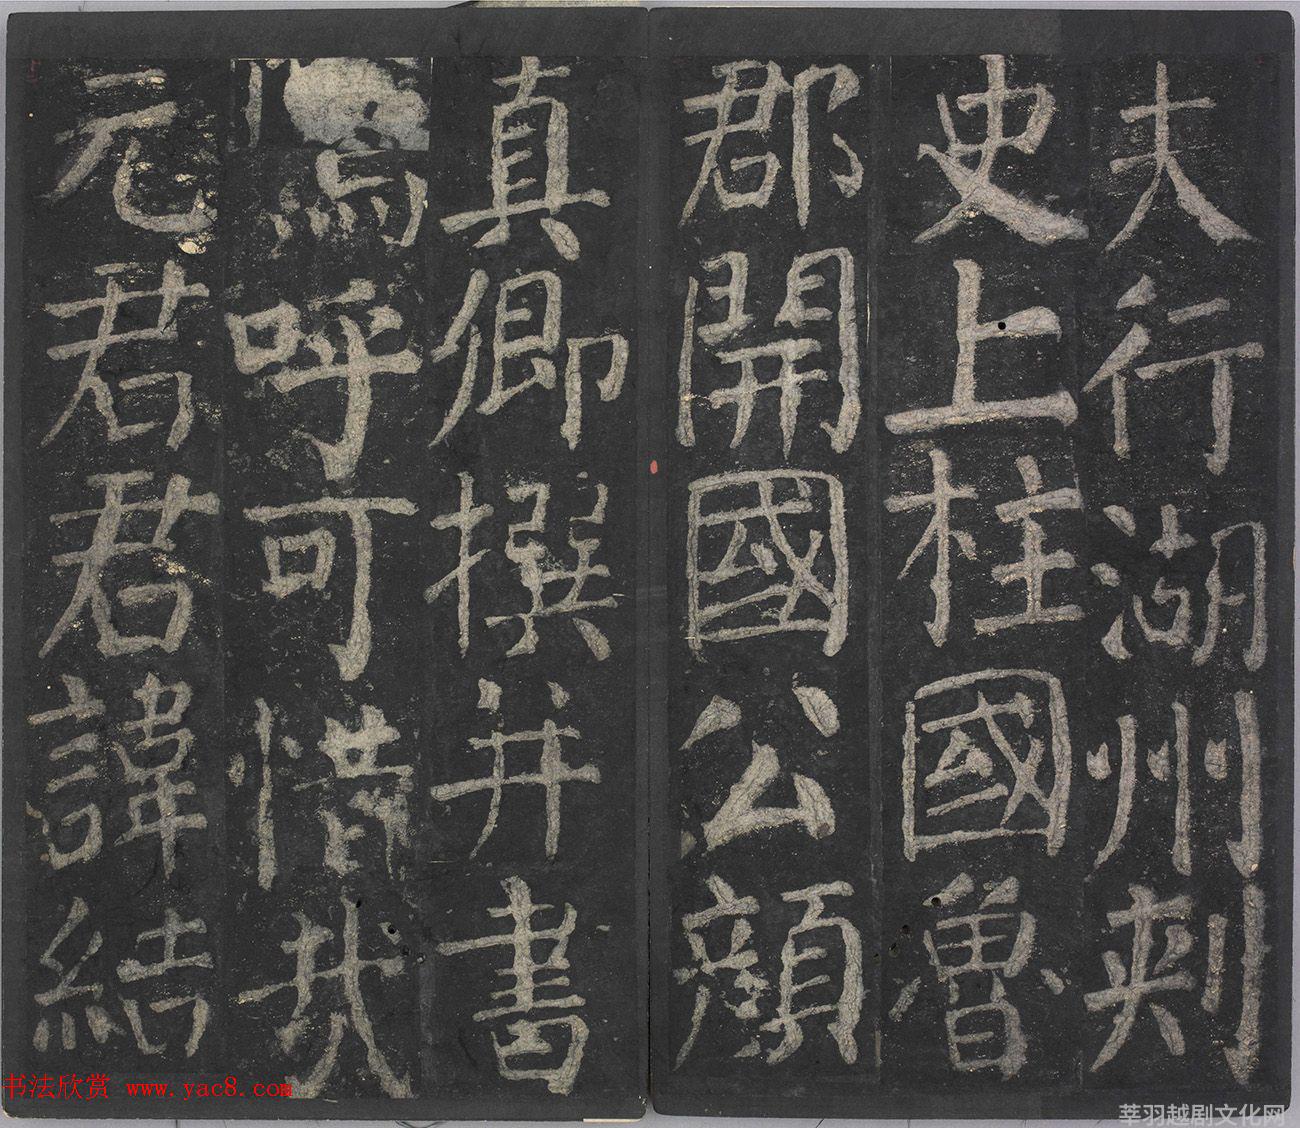 夫行湖州刺
史上柱國魯
郡開國公顔
真卿撰并書
嗚呼可惜哉
元君君諱結
书法欣赏 www.yac8.com
莘羽越剧文化网